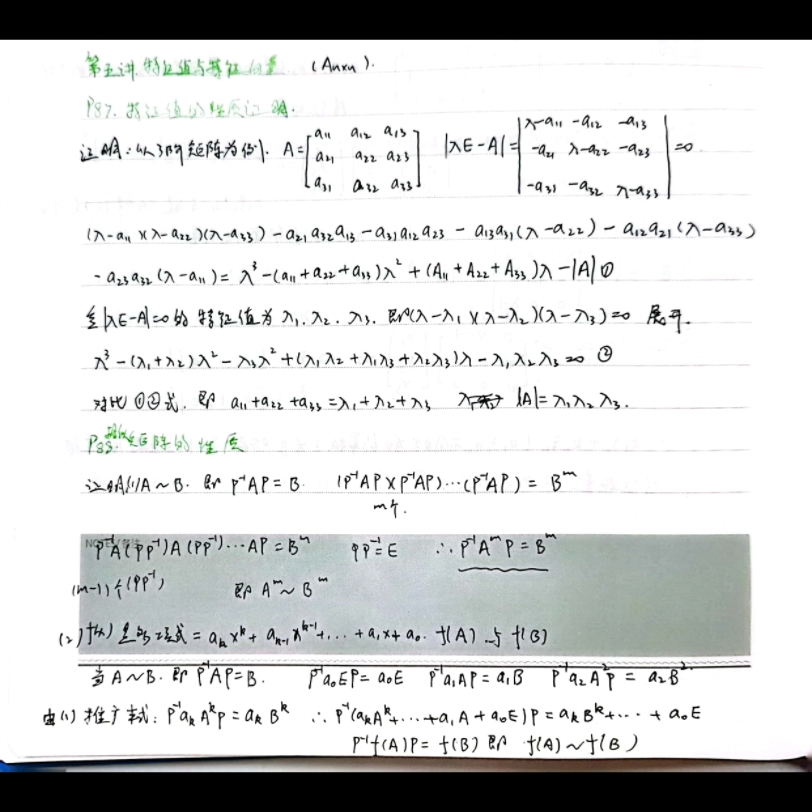 第五讲 特征值与特征向量 (An×n).
P87. 特征值的性质证明.
证明:以3阶矩阵为例. A=[a11 a12 a13 |λE-A|=|λ-a11 -a12 -a13
a21 a22 a23 -a21 λ-a22 -a23 =0
a31 a32 a33] -a31 -a32 λ-a33|
(λ-a11)(λ-a22)(λ-a33)-a21a32a13-a31a12a23-a13a31(λ-a22)-a12a21(λ-a33)
-a23a32(λ-a11)=λ³-(a11+a22+a33)λ²+(A11+A22+A33)λ-|A| ①
|λE-A|=0的特征值为λ1.λ2.λ3. 即(λ-λ1)(λ-λ2)(λ-λ3)=0 展开.
λ³-(λ1+λ2)λ²-λ3λ²+(λ1λ2+λ1λ3+λ2λ3)λ-λ1λ2λ3=0 ②
对比①②式. 即 a11+a22+a33=λ1+λ2+λ3 |A|=λ1λ2λ3.
P88. 相似矩阵的性质
证明(1)A~B. 即 P⁻¹AP=B. (P⁻¹AP)(P⁻¹AP)···(P⁻¹AP)=Bᵐ
m个.
P⁻¹A(PP⁻¹)A(PP⁻¹)···AP=Bᵐ PP⁻¹=E ∴P⁻¹AᵐP=Bᵐ
(m-1)个(PP⁻¹) 即Aᵐ~Bᵐ
(2)f(x)是多项式=akxᵏ+ak-1xᵏ⁻¹+...+a1x+a0. f(A)与f(B)
当A~B. 即P⁻¹AP=B. P⁻¹a0EP=a0E P⁻¹a1AP=a1B P⁻¹a2A²P=a2B².
由(1)推广式:P⁻¹akAᵏP=akBᵏ ∴P⁻¹(akAᵏ+...+a1A+a0E)P=akBᵏ+...+a0E
P⁻¹f(A)P=f(B) 即 f(A)~f(B)